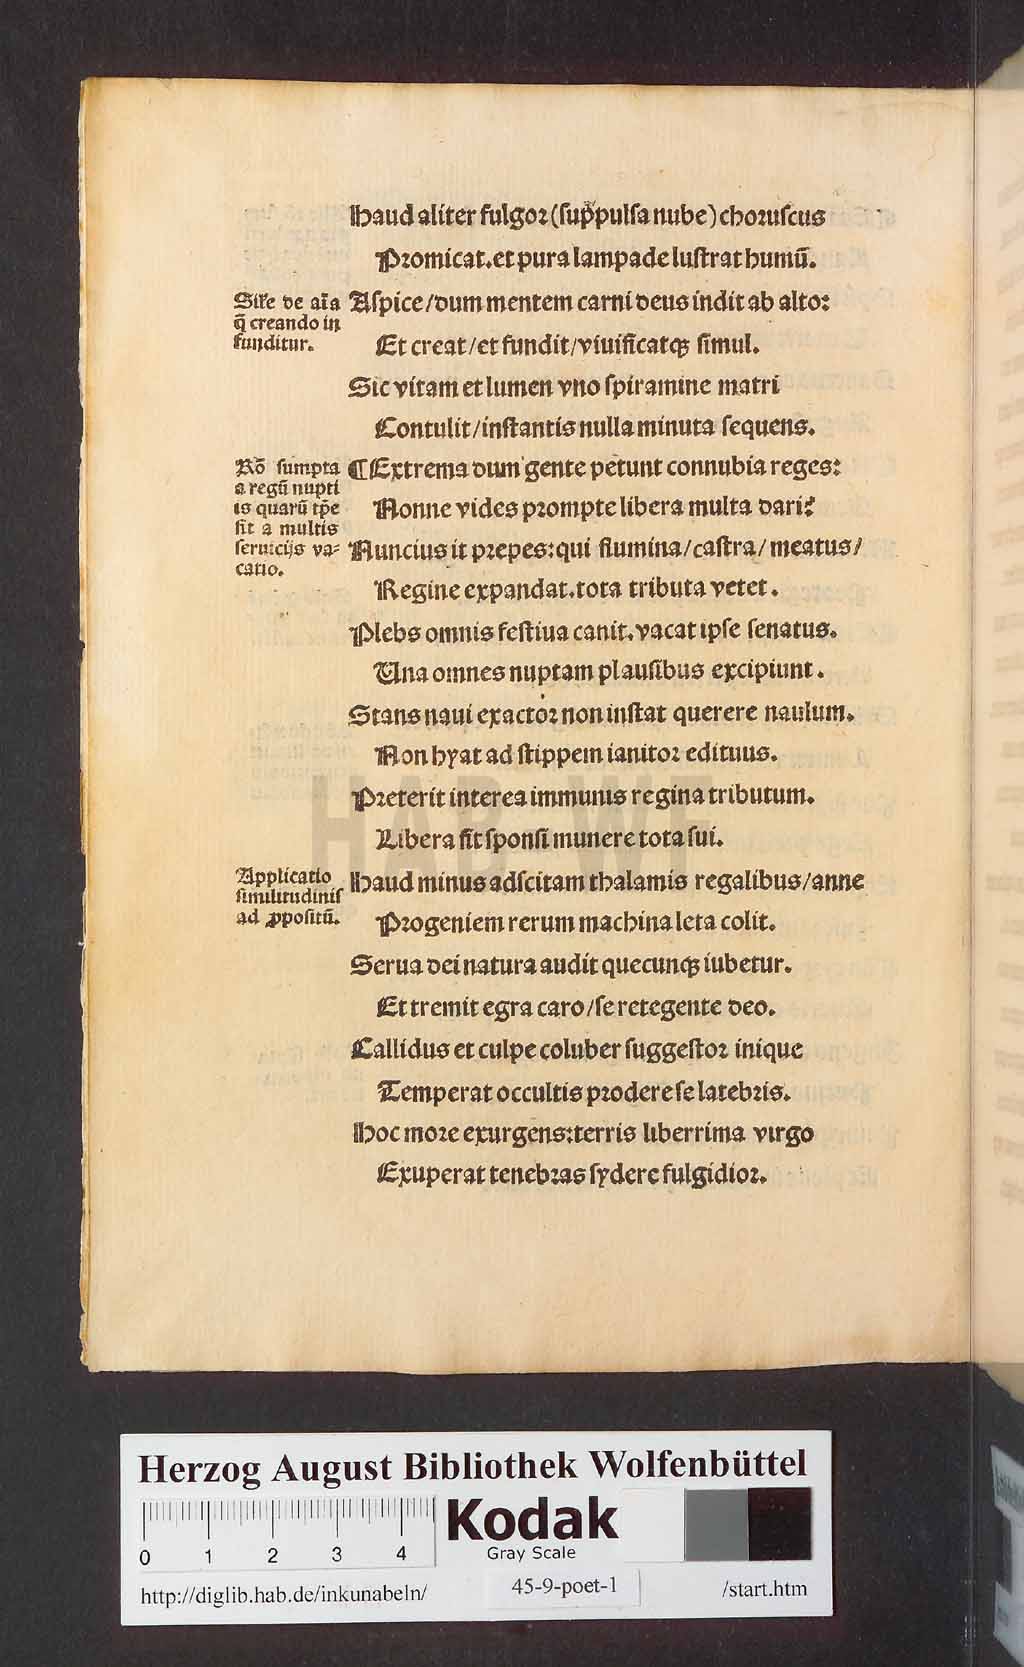 Haud aliter fulgor (suppulsa nube) choruscus
Promicat. et pura lampade lustrat humū.
Sil'e de aīa
q̄ creando in
funditur.
Aspice/dum mentem carni deus indit ab alto:
Et creat/et fundit/viuificatqꝫ simul.
Sic vitam et lumen vno spiramine matri
Contulit/instantis nulla minuta sequens.
Rō sumpta
a regū nupti
is quarū tp̄e
fit a multis
seruicijs va⸗
catio.
¶Extrema dum gente petunt connubia reges:
Nonne vides prompte libera multa dari?
Nuncius it prepes: qui flumina/castra/meatus/
Regine expandat. tota tributa vetet.
Plebs omnis festiua canit. vacat ipse senatus.
Una omnes nuptam plausibus excipiunt.
Stans naui exactor non instat querere naulum.
Non hyat ad stippem ianitor edituus.
Preterit interea immunis regina tributum.
Libera fit sponsi munere tota sui.
Applicatio
similitudinis
ad ꝓpositū.
Haud minus adscitam thalamis regalibus/anne
Progeniem rerum machina leta colit.
Serua dei natura audit quecunqꝫ iubetur.
Et tremit egra caro/se retegente deo.
Callidus et culpe coluber suggestor inique
Temperat occultis prodere se latebris.
Hoc more exurgens: terris liberrima virgo
Exuperat tenebras sydere fulgidior.
HAB WF
Herzog August Bibliothek Wolfenbüttel
0 1 2 3 4
Kodak
Gray Scale
http://diglib.hab.de/inkunabeln/
45-9-poet-1
/start.htm